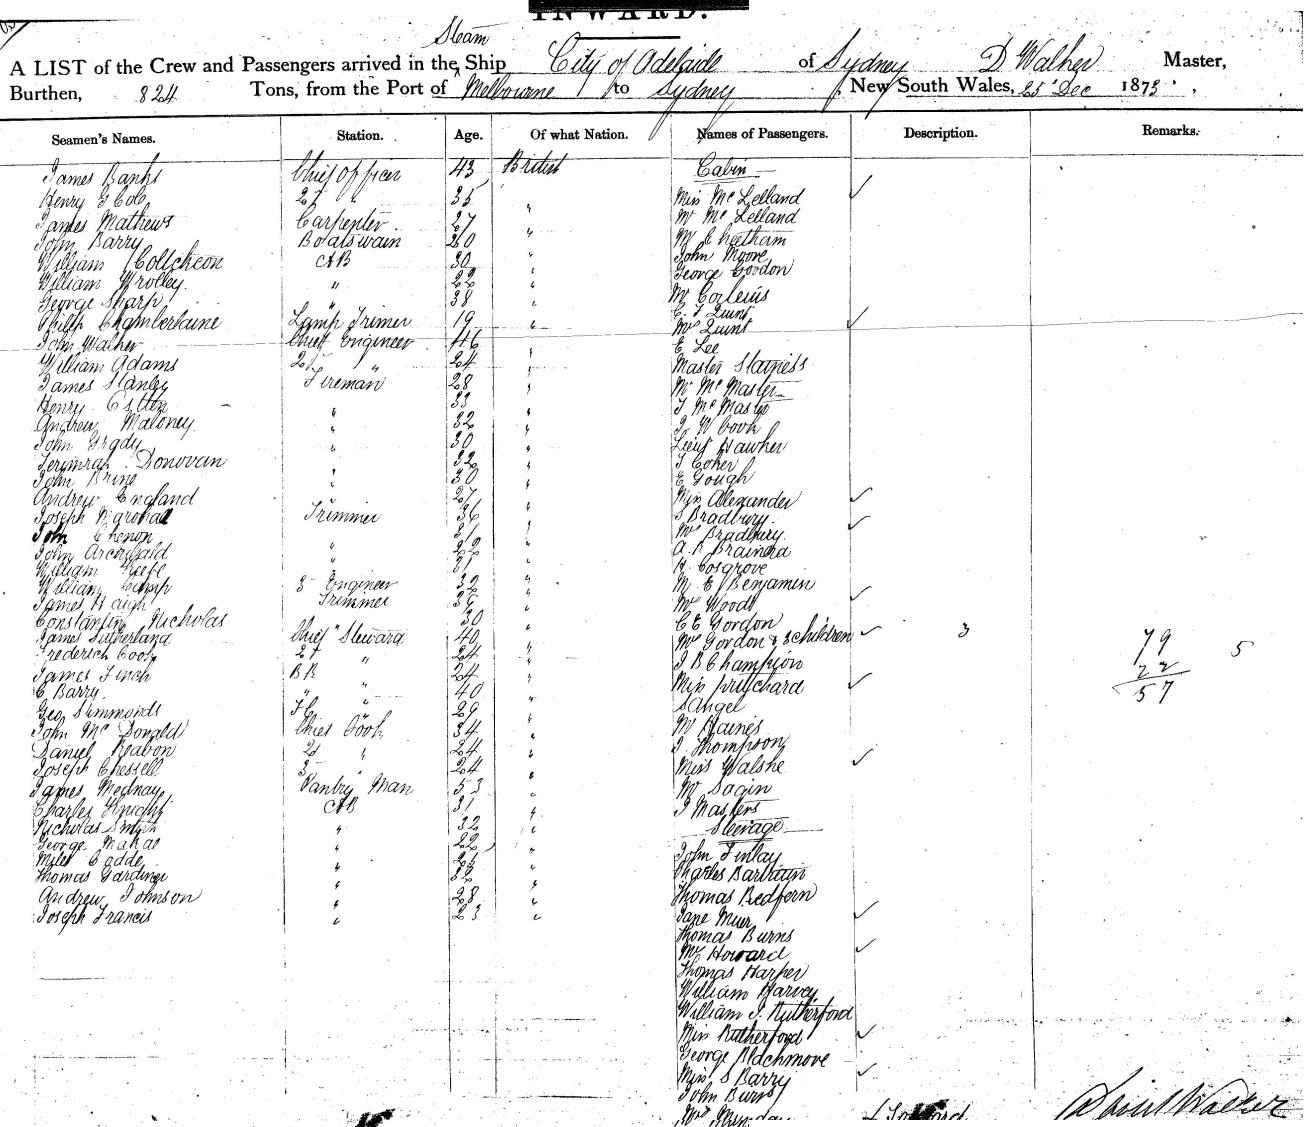 INWARD.
Steam
A LIST of the Crew and Passengers arrived in the Ship City of Adelaide of Sydney D Walker Master,
Burthen, 824 Tons, from the Port of Melbourne to Sydney, New South Wales, 25 Dec 1873.
Seamen's Names. Station. Age. Of what Nation. Names of Passengers. Description. Remarks.
James Banks Chief officer 43 British
Henry G Cob 2d " 35 "
James Mathews Carpenter 27 "
John Barry Boatswain 20 "
William AB 30 "
William Wrolley " 22 "
George Sharp " 38 "
Philip Chamberlaine Lamp Trimer 19 "
John Walker Chief Engineer 46 "
William Adams 2d " 24 "
James Stanley Fireman 28 "
Henry 33 "
Andrew Maloney " 32 "
John Grady " 30 "
Donovan " 32 "
John Brine " 30 "
Andrew England " 27 "
Joseph Marshall Trimmer 36 "
John Chenon " 31 "
John Archibald " 22 "
William Keefe " 21 "
William Camp 3 Engineer 32 "
James Haigh Trimmer "
Constantine Nicholas " 30 "
James Sutherland Chief Steward 40 "
Frederich Cook 2d " 24 "
James Finch BR " 24 "
C Barry " " 40 "
Geo Simmonds FC " 29 "
John Mc Donald Chief Cook 34 "
Daniel Reabon 2d " 24 "
Joseph Chessell 3 " 24 "
James Mednay Pantry Man 53 "
Charles Knight AB 31 "
Nicholas Smyth " 32 "
George " 22 "
Miles Cadde " "
Thomas Gardiner " 32 "
Andrew Johnson " 28 "
Joseph Francis " 23 "
Cabin
Miss Mc Lelland ✓
Mr Mc Lelland
Mr Cheetham
John Moore
George Gordon
Mr
C F Quint
Mrs Quint ✓
E Lee
Master
Mr Mc Master
J Mc Master
J W Cook
Lieut Hawker
J Coker
E Gough
Miss Alexander ✓
S Bradbury
Mrs Bradbury ✓
A R Brainerd
H Cosgrove
M E Benjamin
Mrs Woods ✓
C E Gordon
Mrs Gordon & 3 Children ✓ 3
J B Champion
Miss Pritchard ✓
S Angel
Mr Haines
J Thompson
Miss Walshe ✓
Mr Sagin
J Masters
Steerage
John Finlay
Charles Bartram
Thomas Bedfern
Jane Muir ✓
Thomas Burns
Mrs Howard ✓
Thomas Harper
William Harvey
William J. Rutherford
Miss Rutherford ✓
George Blachmore
Miss S Barry ✓
John Burns
79
22
57
5
David Walker